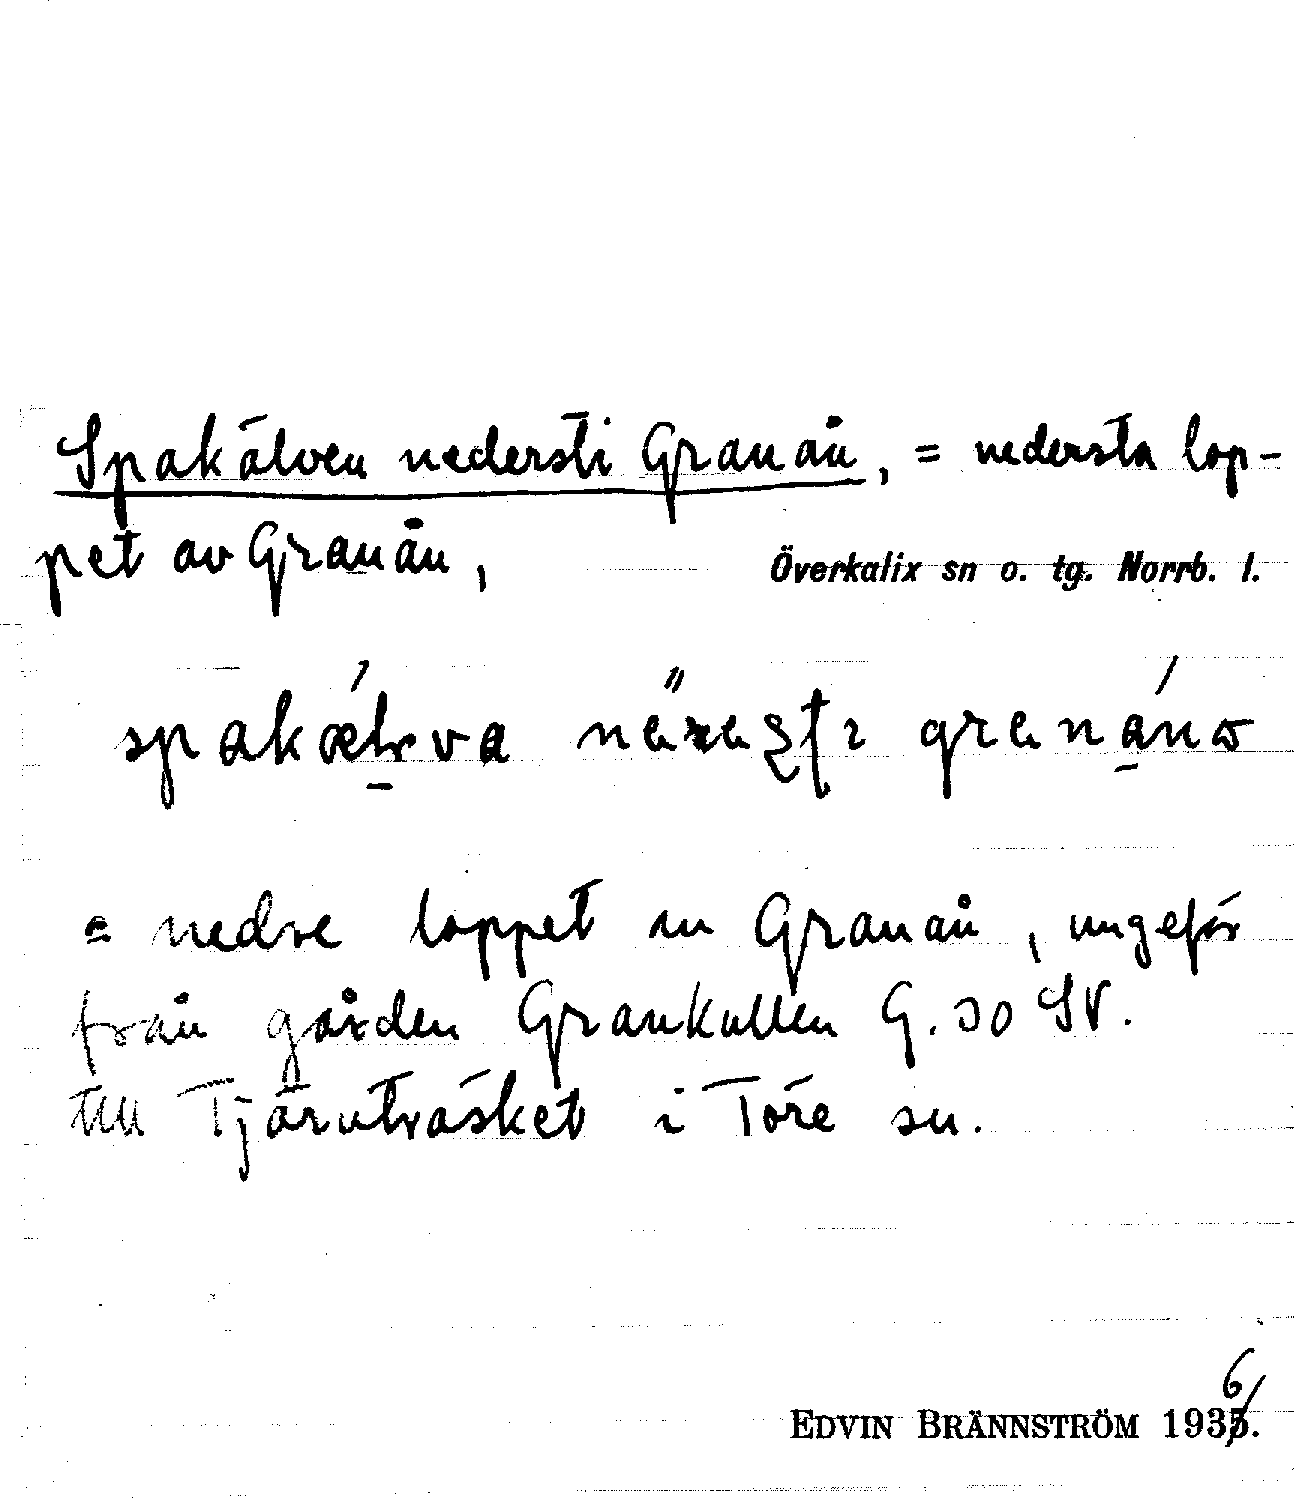 Spakälven nedersti Granån, = nedersta lop-
pet av Granån,
Överkalix sn o. tg. Norrb. l.
= nedre loppet av Granån, ungefär
från gården Grankullen G. 30 SV.
till Tjärnträsket i Töre sn.
6
EDVIN BRÄNNSTRÖM 1935.